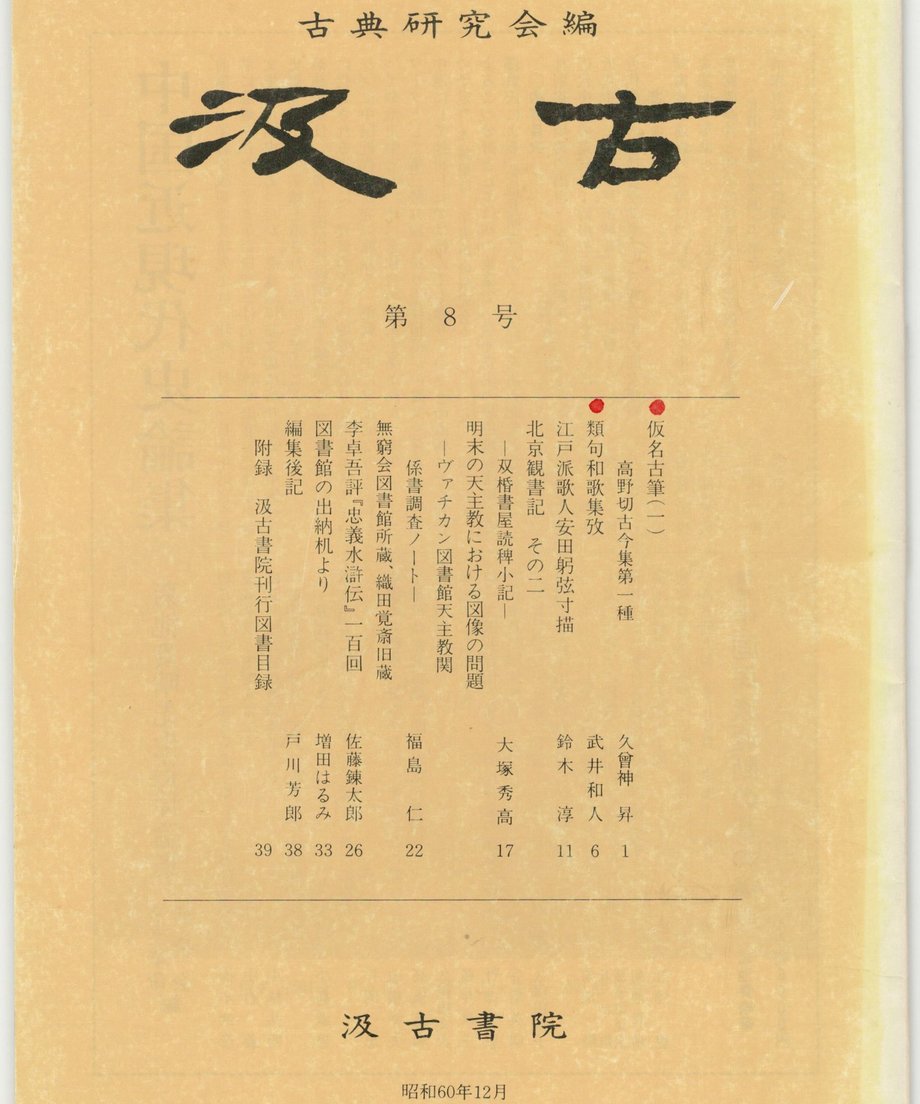 古典研究会編
汲古
第8号
仮名古筆(一)
高野切古今集第一種 久曾神 昇 1
類句和歌集攷 武井和人 6
江戸派歌人安田躬弦寸描 鈴木 淳 11
北京観書記 その二
―双桮書屋読稗小記― 大塚秀高 17
明末の天主教における図像の問題
―ヴァチカン図書館天主教関
係書調査ノート― 福島 仁 22
無窮会図書館所蔵、織田覚斎旧蔵
李卓吾評『忠義水滸伝』一百回 佐藤錬太郎 26
図書館の出納机より 増田はるみ 33
編集後記 戸川芳郎 38
附録 汲古書院刊行図書目録 39
汲古書院
昭和60年12月